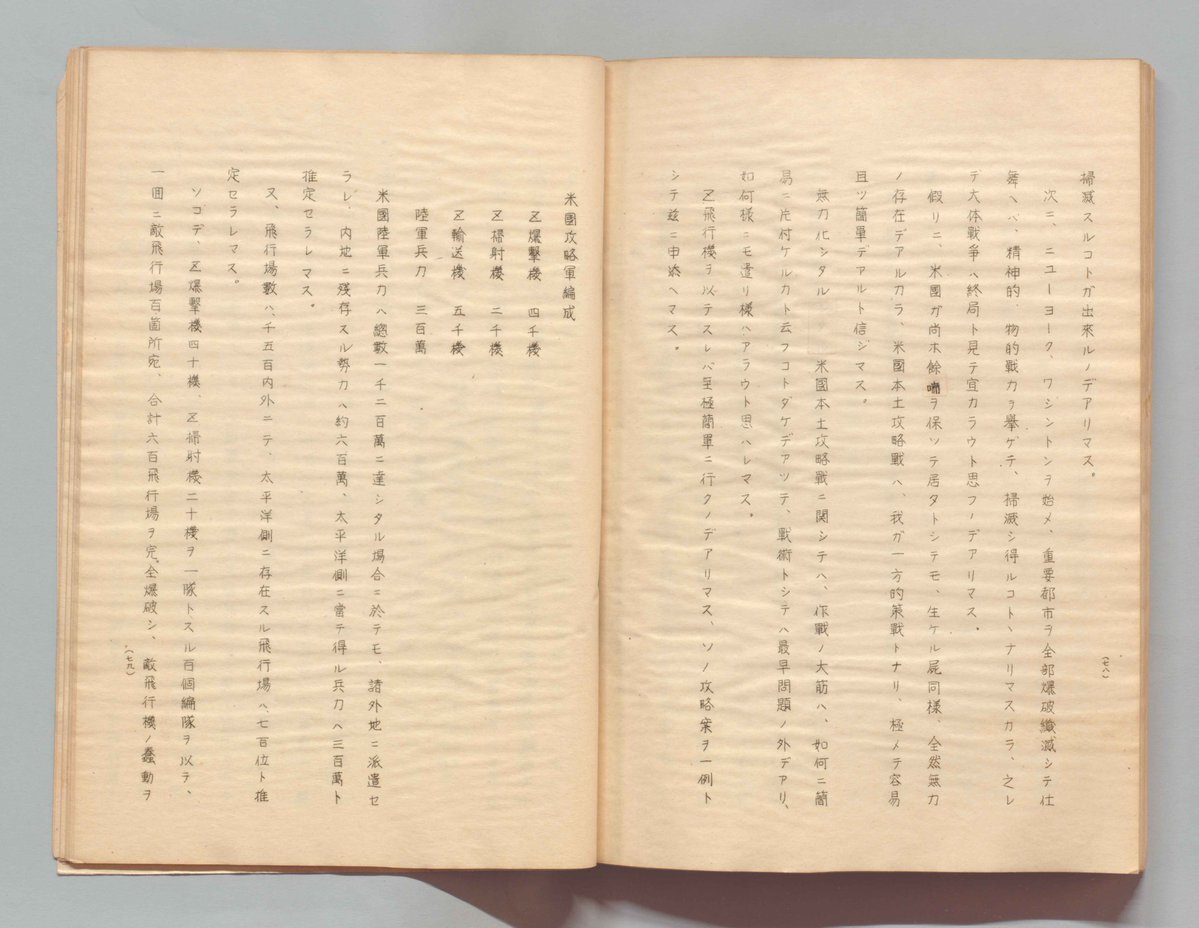 掃滅スルコトガ出來ルノデアリマス。
次ニ、ニユーヨーク、ワシントンヲ始メ、重要都市ヲ全部爆破殲滅シテ仕
舞ヘバ、精神的、物的戰力ヲ擧ゲテ、掃滅シ得ルコトヽナリマスカラ、之レ
デ大体戰爭ハ終局ト見テ宜カラウト思フノデアリマス。
假リニ、米國ガ尚ホ餘喘ヲ保ツテ居タトシテモ、生ケル屍同樣、全然無力
ノ存在デアルカラ、米國本土攻略戰ハ、我ガ一方的策戰トナリ、極メテ容易
且ツ簡單デアルト信ジマス。
無力化シタル 米國本土攻略戰ニ関シテハ、作戰ノ大筋ハ、如何ニ簡
易ニ片付ケルカト云フコトダケデアツテ、戰術トシテハ最早問題ノ外デアリ、
如何樣ニモ遣リ樣ハアラウト思ハレマス。
Z飛行機ヲ以テスレバ至極簡單ニ行クノデアリマス、ソノ攻略案ヲ一例ト
シテ茲ニ申添ヘマス。
(七八)
米國攻略軍編成
Z爆擊機 四千機
Z掃射機 二千機
Z輸送機 五千機
陸軍兵力 三百萬
米國陸軍兵力ハ總數一千二百萬ニ達シタル場合ニ於テモ、諸外地ニ派遣セ
ラレ、内地ニ殘存スル勢力ハ約六百萬、太平洋側ニ當テ得ル兵力ハ三百萬ト
推定セラレマス。
又、飛行場數ハ、千五百内外ニテ、太平洋側ニ存在スル飛行場ハ、七百位ト推
定セラレマス。
ソコデ、Z爆擊機四十機、Z掃射機二十機ヲ一隊トスル百個編隊ヲ以テ、
一囘ニ敵飛行場百箇所宛、合計六百飛行場ヲ完全爆破シ、敵飛行機ノ蠢動ヲ
(七九)